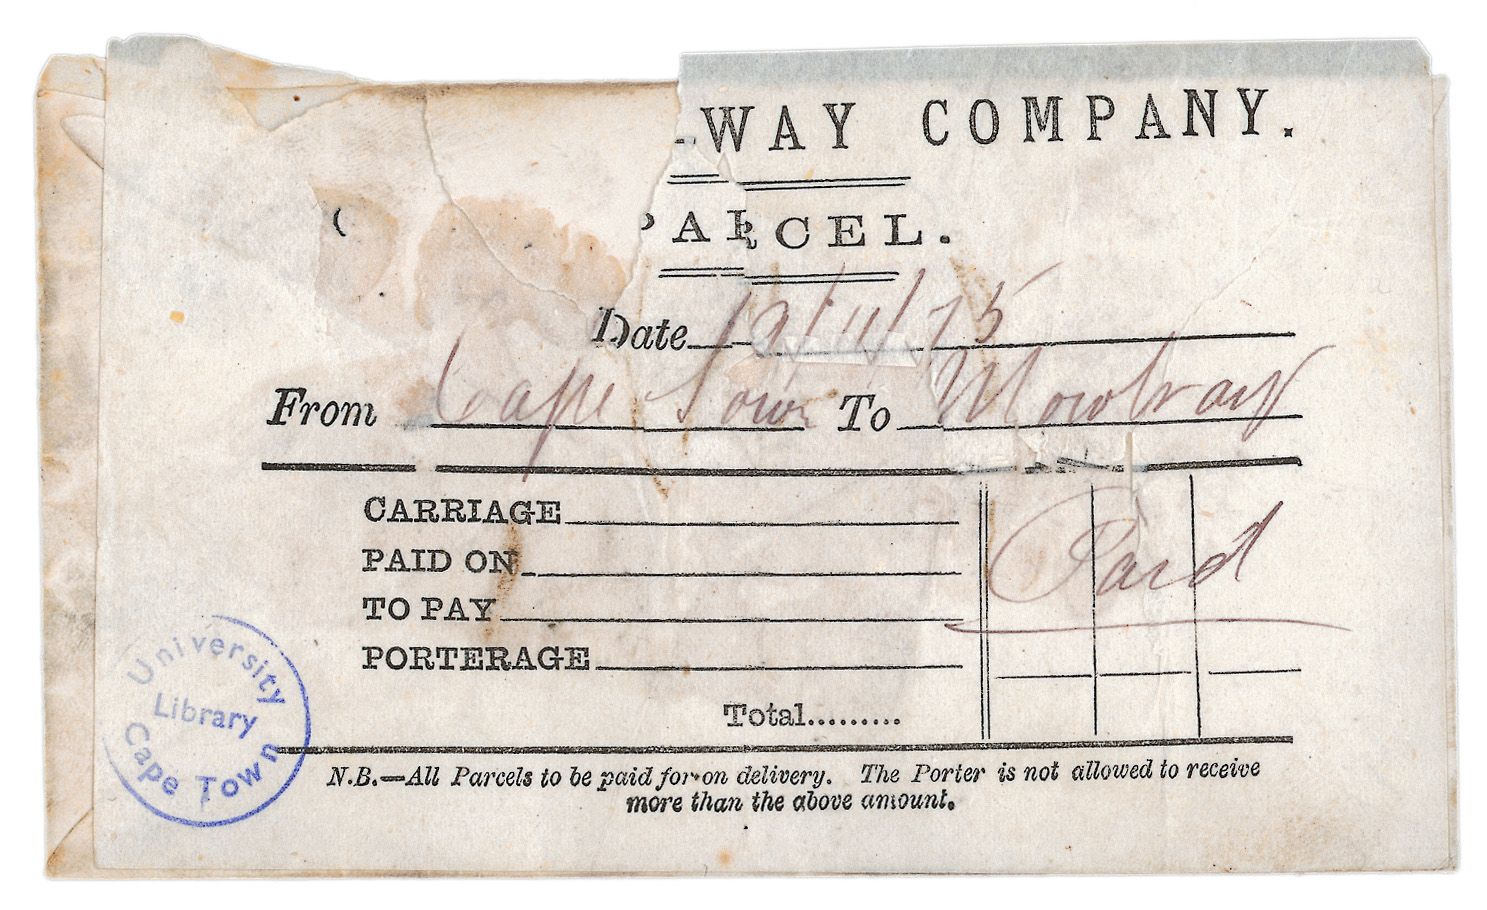 WAY COMPANY.
PARCEL.
Date 19/11/75
From Cape Town To Mowbray
CARRIAGE
PAID ON
TO PAY
PORTERAGE
Paid
Total.........
N.B.—All Parcels to be paid for on delivery. The Porter is not allowed to receive
more than the above amount.
University
Library
Cape Town